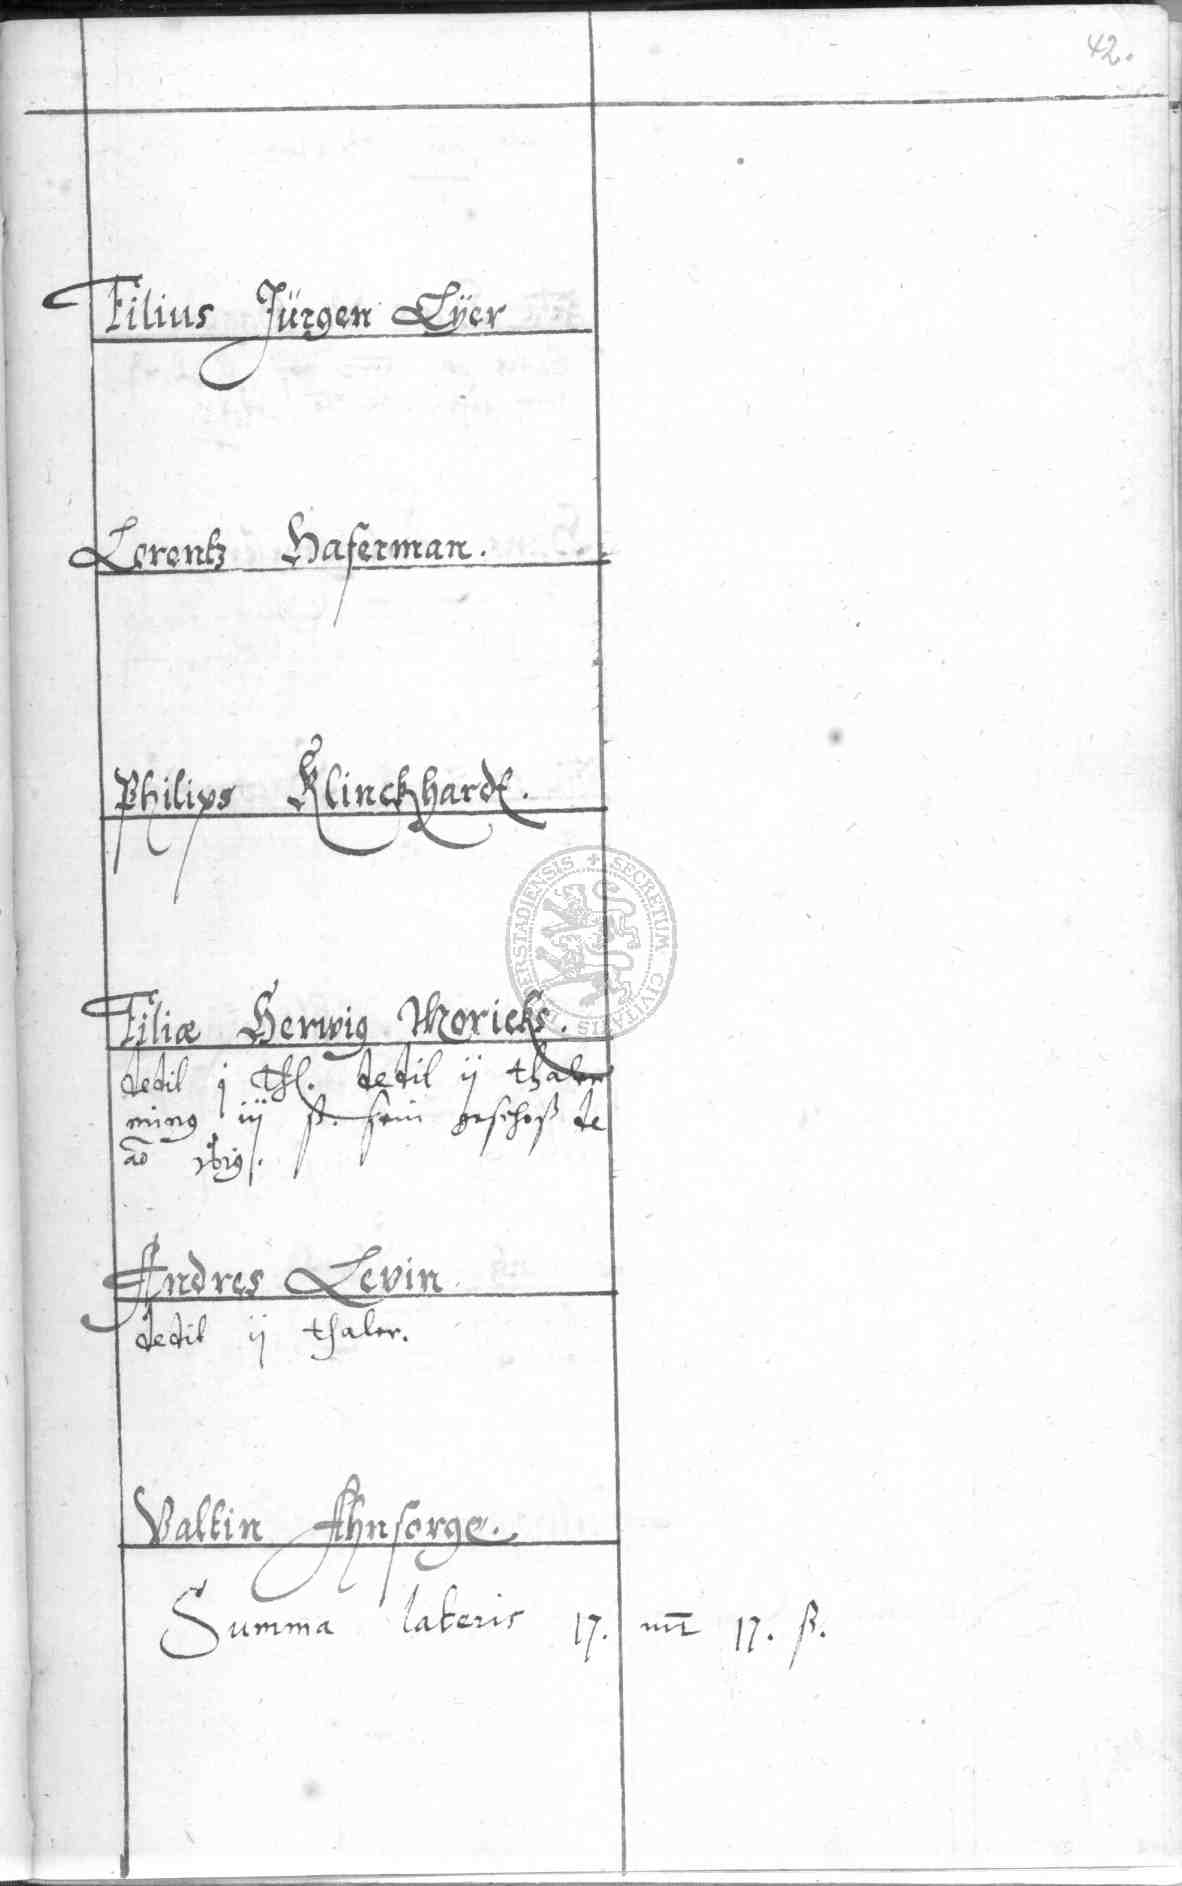 42.
Filius Jürgen Lÿer
Lorentz Haferman.
Philips Klinckhardt.
Filiæ Herwig Moricks.
dedit j thl. dedit ij thaler
ming iij ß. sein geschoß de
ao
Andres Levin.
dedit ij thaler.
Valtin Ahnsorge.
Summa lateris 17. mr 17. ß.
SECRETUM CIVITATIS HALBERSTADIENSIS